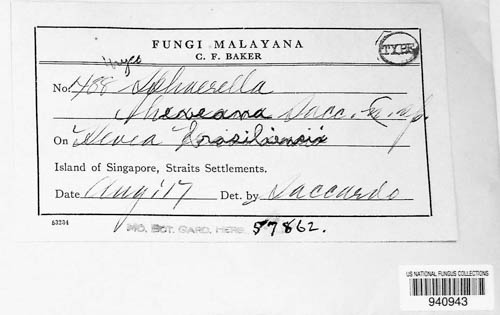 FUNGI MALAYANA
C. F. BAKER
TYPE
Myco
No. 488 Sphaerella
heveana Sacc. n. sp.
On Hevea brasiliensis
Island of Singapore, Straits Settlements.
Date Aug '17 Det. by Saccardo
63234
MO. BOT. GARD. HERB. 57862.
US NATIONAL FUNGUS COLLECTIONS
940943